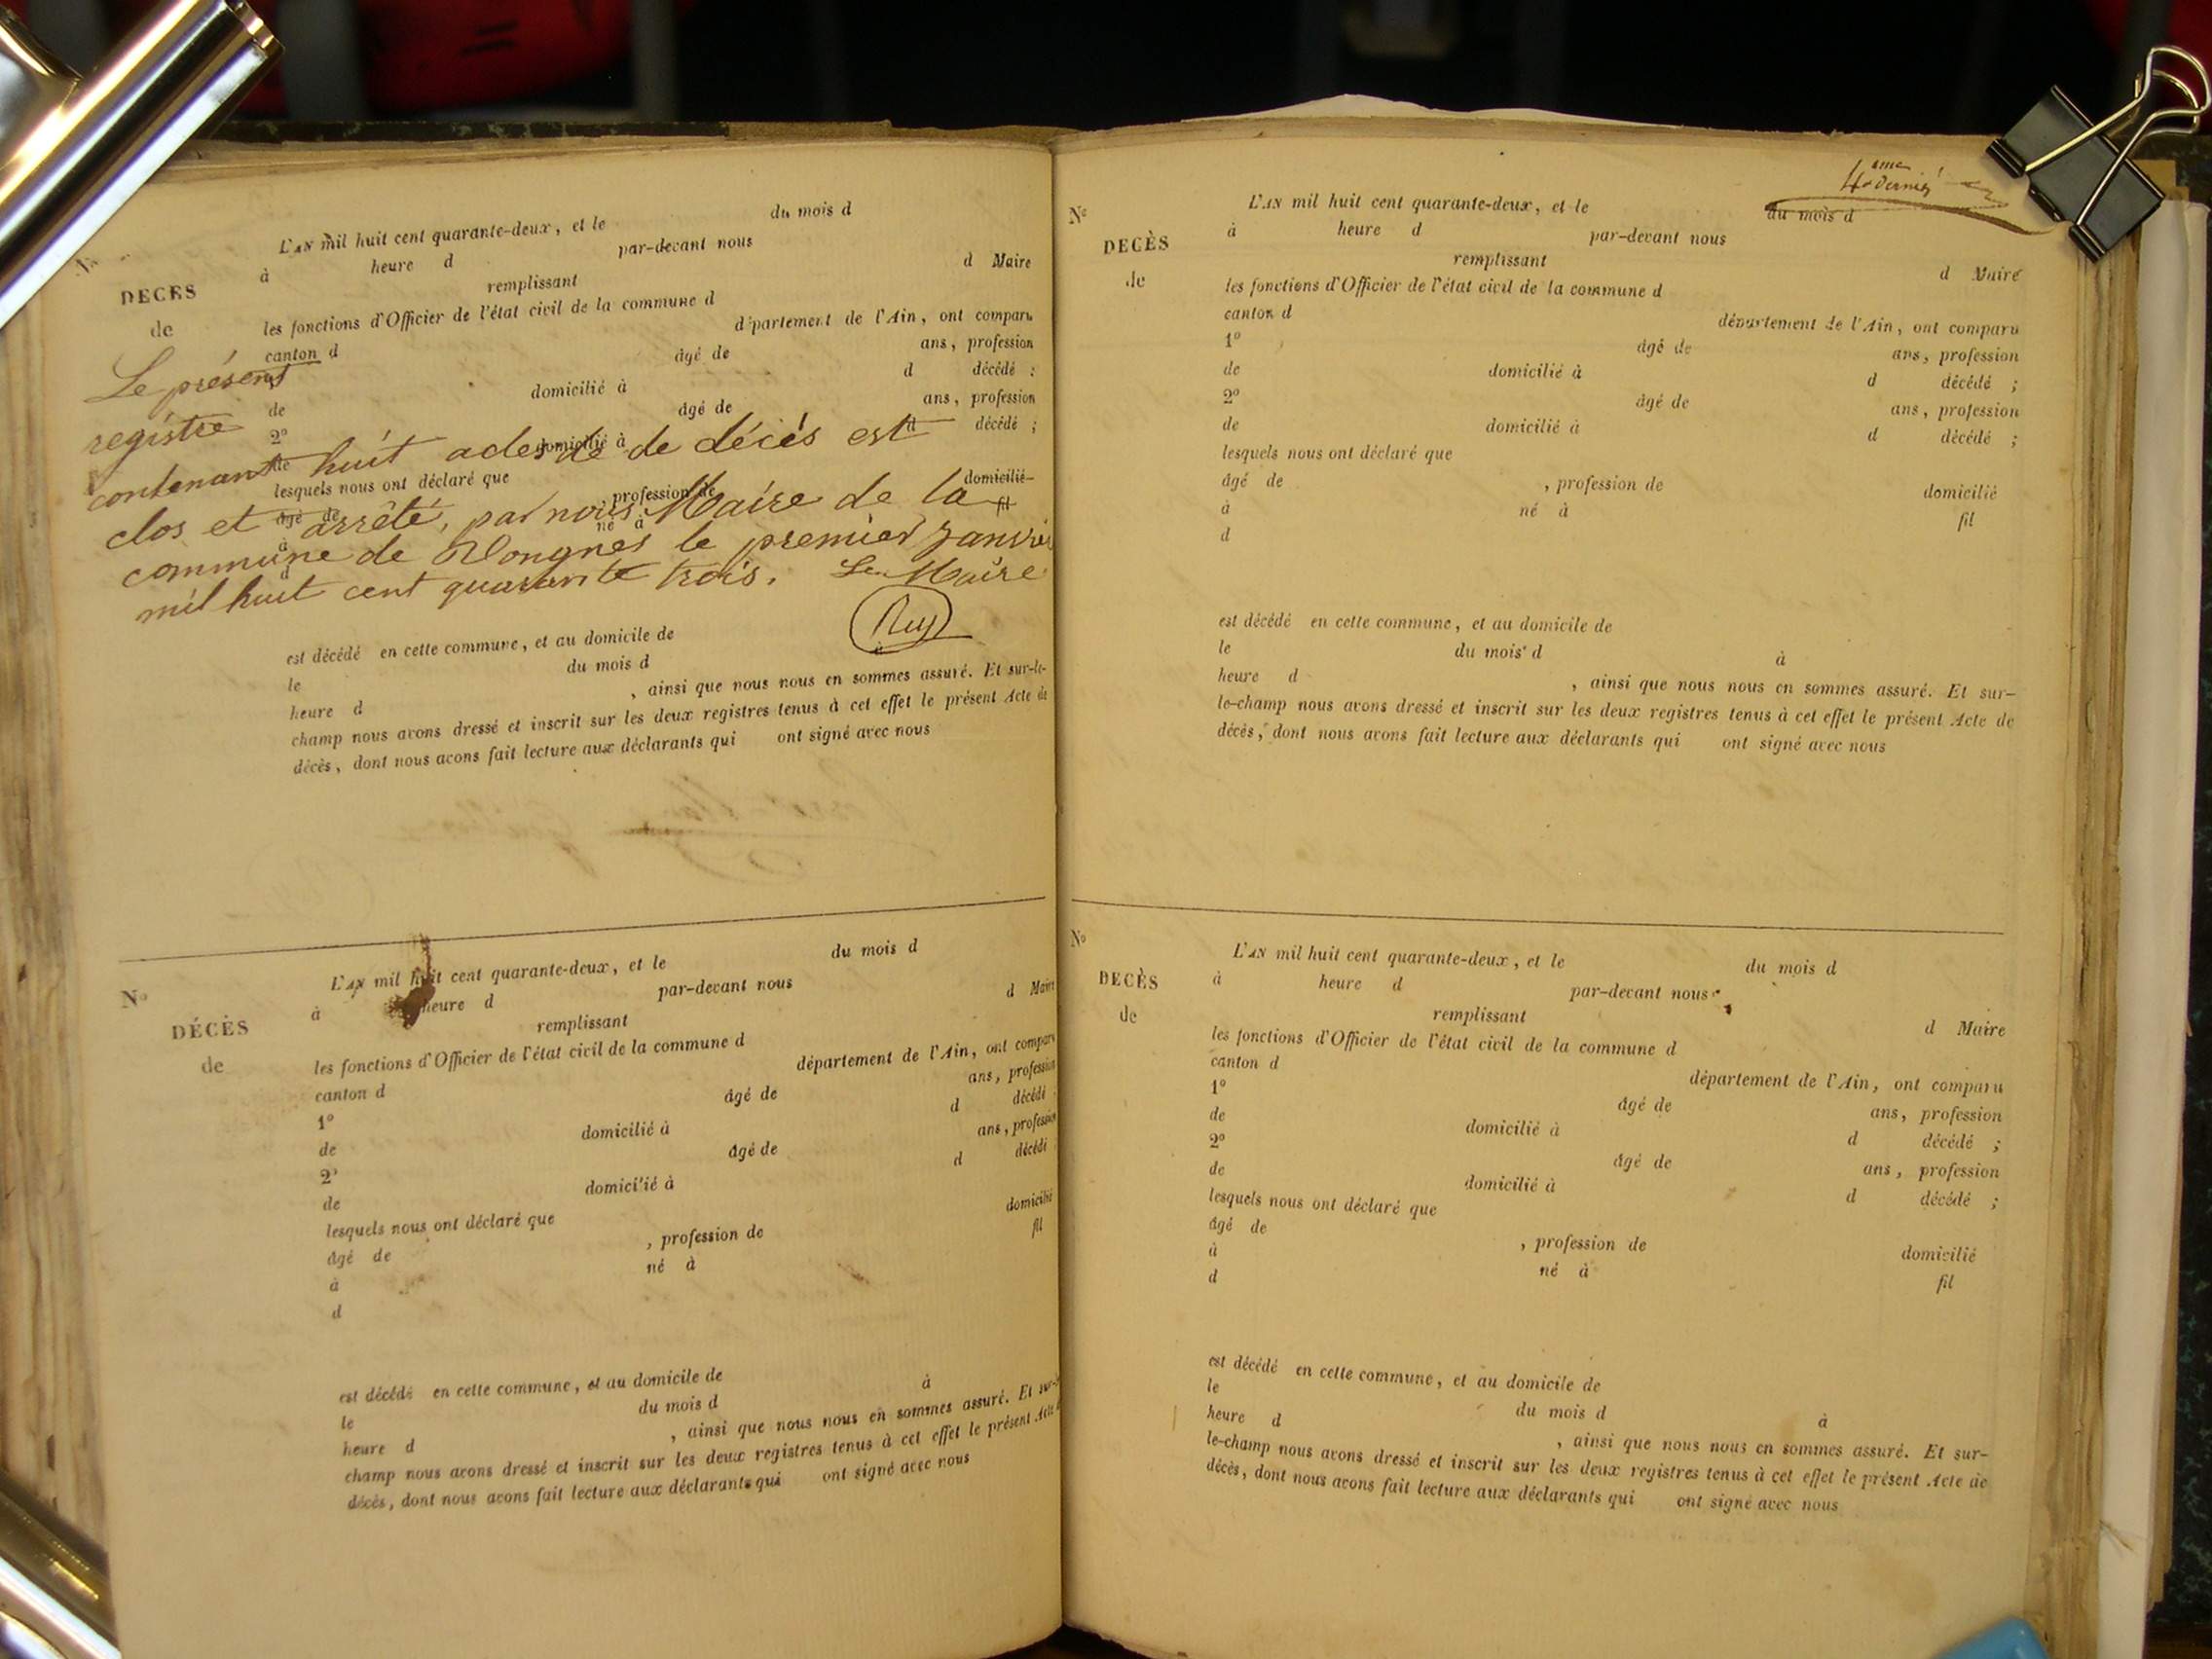 N°
L'AN mil huit cent quarante-deux, et le du mois d
à heure d par-devant nous
DECES remplissant d Maire
de les fonctions d'Officier de l'état civil de la commune d
canton d département de l'Ain, ont comparu
Le présent âgé de ans, profession
de domicilié à d décédé ;
registre 2° âgé de ans, profession
de domicilié à d décédé ;
contenant huit actes de de décès est
lesquels nous ont déclaré que
âgé de , profession de domicilié
clos et arrêté, par nous Maire de la
à né à fil
commune de Vongnes le premier janvier
d
mil huit cent quarante trois. Le Maire
est décédé en cette commune, et au domicile de
le du mois d à
heure d , ainsi que nous nous en sommes assuré. Et sur-le-
champ nous avons dressé et inscrit sur les deux registres tenus à cet effet le présent Acte de
décès, dont nous avons fait lecture aux déclarants qui ont signé avec nous
N°
L'AN mil huit cent quarante-deux, et le du mois d
à heure d par-devant nous
DÉCÈS remplissant d Maire
de les fonctions d'Officier de l'état civil de la commune d
canton d département de l'Ain, ont comparu
1° âgé de ans, profession
de domicilié à d décédé
2° âgé de ans, profession
de domicilié à d décédé
lesquels nous ont déclaré que
âgé de , profession de domicilié
à né à fil
d
est décédé en cette commune, et au domicile de
le du mois d à
heure d , ainsi que nous nous en sommes assuré. Et sur-le-
champ nous avons dressé et inscrit sur les deux registres tenus à cet effet le présent Acte de
décès, dont nous avons fait lecture aux déclarants qui ont signé avec nous
4eme
et dernier
N° L'AN mil huit cent quarante-deux, et le du mois d
à heure d par-devant nous
DECÈS remplissant d Maire
de les fonctions d'Officier de l'état civil de la commune d
canton d département de l'Ain, ont comparu
1° âgé de ans, profession
de domicilié à d décédé ;
2° âgé de ans, profession
de domicilié à d décédé ;
lesquels nous ont déclaré que
âgé de , profession de domicilié
à né à fil
d
est décédé en cette commune, et au domicile de
le du mois d à
heure d , ainsi que nous nous en sommes assuré. Et sur-
le-champ nous avons dressé et inscrit sur les deux registres tenus à cet effet le présent Acte de
décès, dont nous avons fait lecture aux déclarants qui ont signé avec nous
N°
L'AN mil huit cent quarante-deux, et le du mois d
DECÈS à heure d par-devant nous
de remplissant d Maire
les fonctions d'Officier de l'état civil de la commune d
canton d département de l'Ain, ont comparu
1° âgé de ans, profession
de domicilié à d décédé ;
2° âgé de ans, profession
de domicilié à d décédé ;
lesquels nous ont déclaré que
âgé de , profession de domicilié
à né à fil
d
est décédé en cette commune, et au domicile de
le du mois d à
heure d , ainsi que nous nous en sommes assuré. Et sur-
le-champ nous avons dressé et inscrit sur les deux registres tenus à cet effet le présent Acte de
décès, dont nous avons fait lecture aux déclarants qui ont signé avec nous